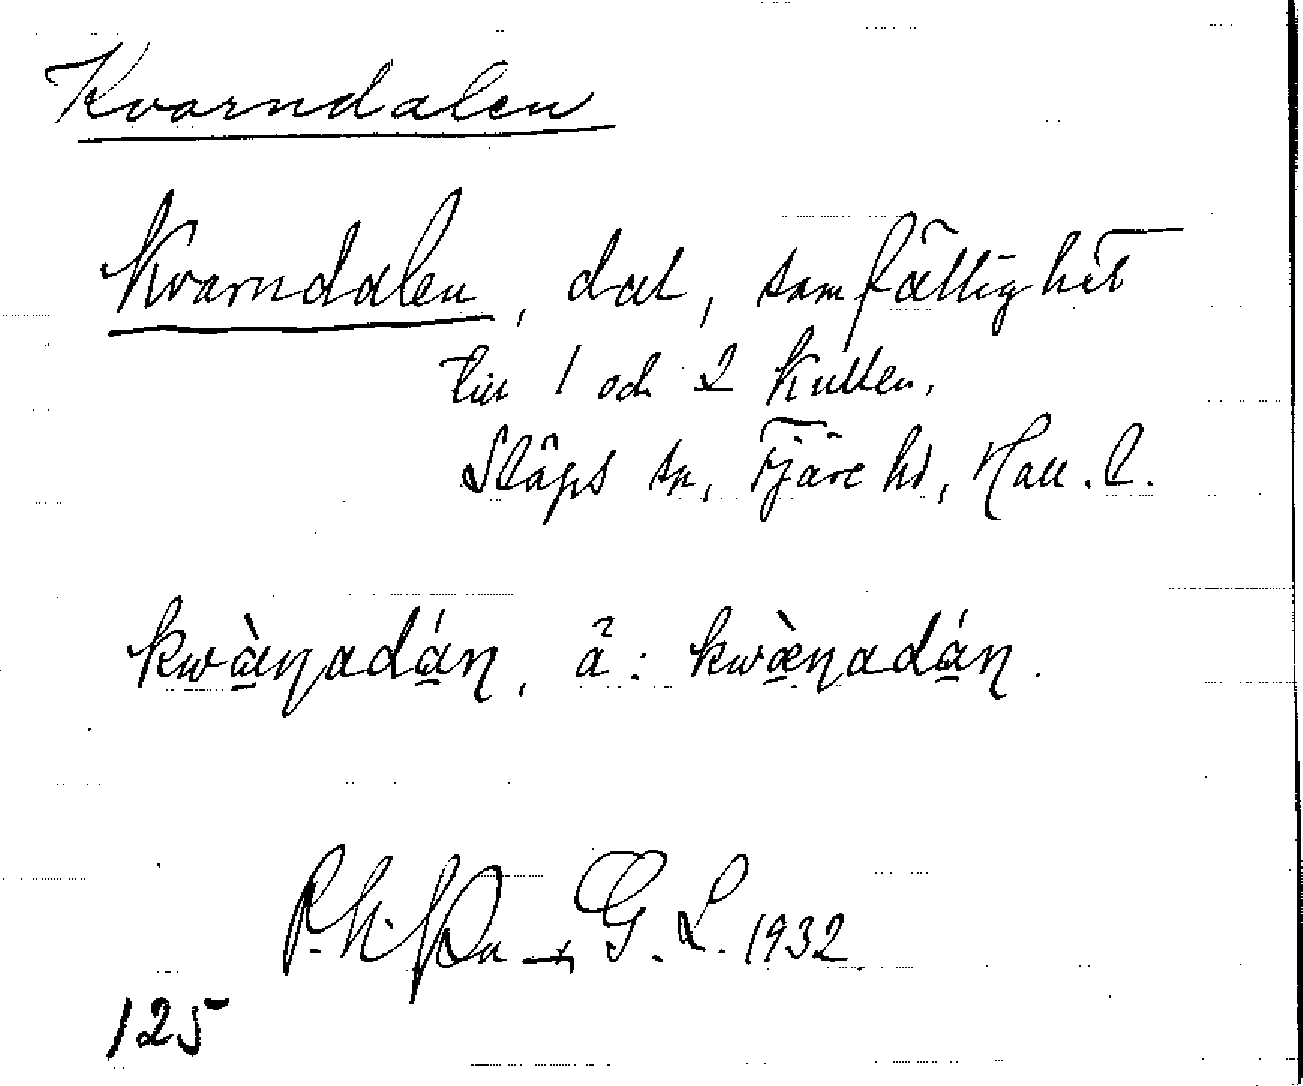 Kvarndalen
Kvarndalen, dal, samfällighet
till 1 och 2 Kullen,
Släps sn, Fjäre hd, Hall. l.
kwàŋadáŋ, ä: kwæ̀ŋadáŋ.
G. L. 1932
125